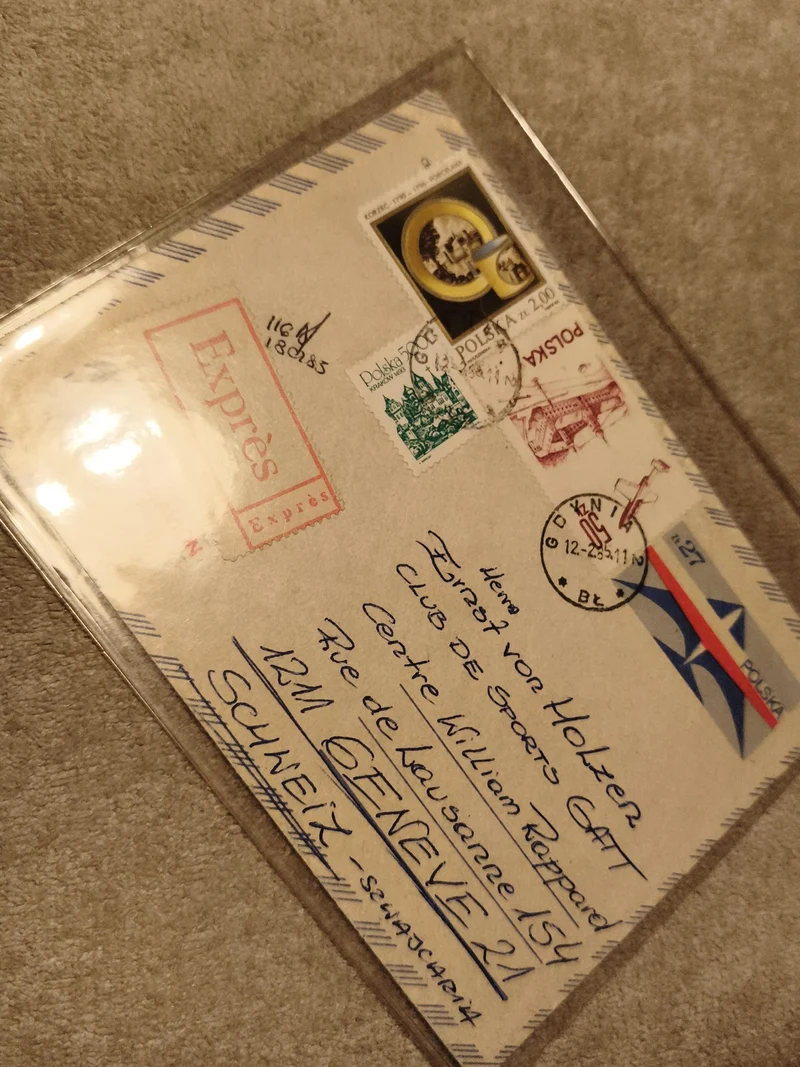 KORZEC - 1790 - 1796 PORCELANA
POLSKA ZŁ 2,00
Polska 5.00
KRAKÓW 1493
POLSKA
GDYNIA
12.-2.85.11
BŁ
27
POLSKA
Exprès
Exprès
116
Herrn
Ernst von Holzen
CLUB DE SPORTS GATT
Centre William Rappard
Rue de Lausanne 154
1211 GENEVE 21
SCHWEIZ - SZWAJCARIA